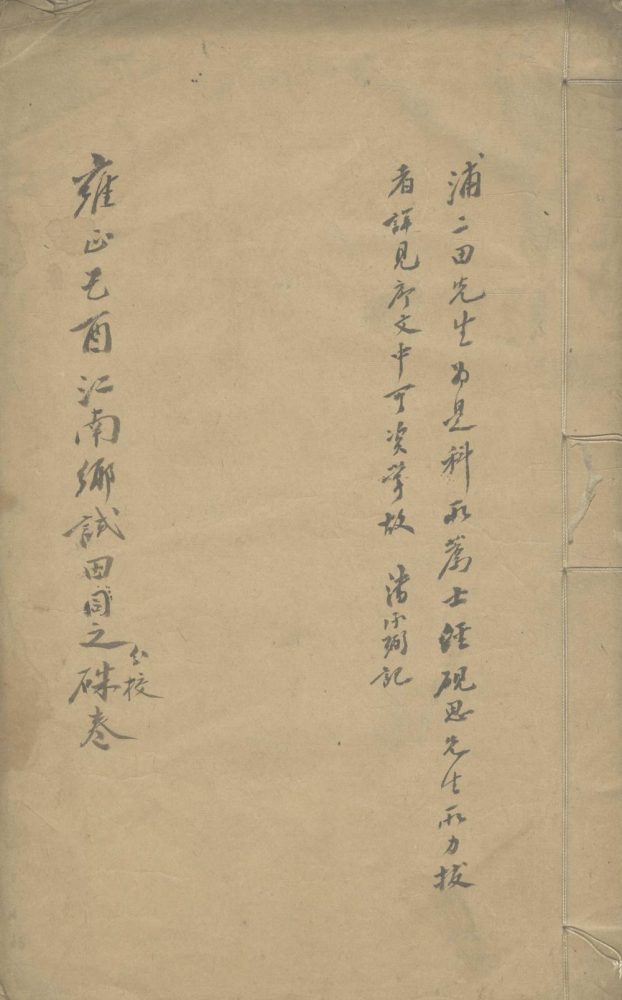 浦二田先生為是科所薦士經硯思先生所力拔
者詳見序文中可資掌故　潘承弼記
雍正己酉江南鄉試田同之分校硃卷